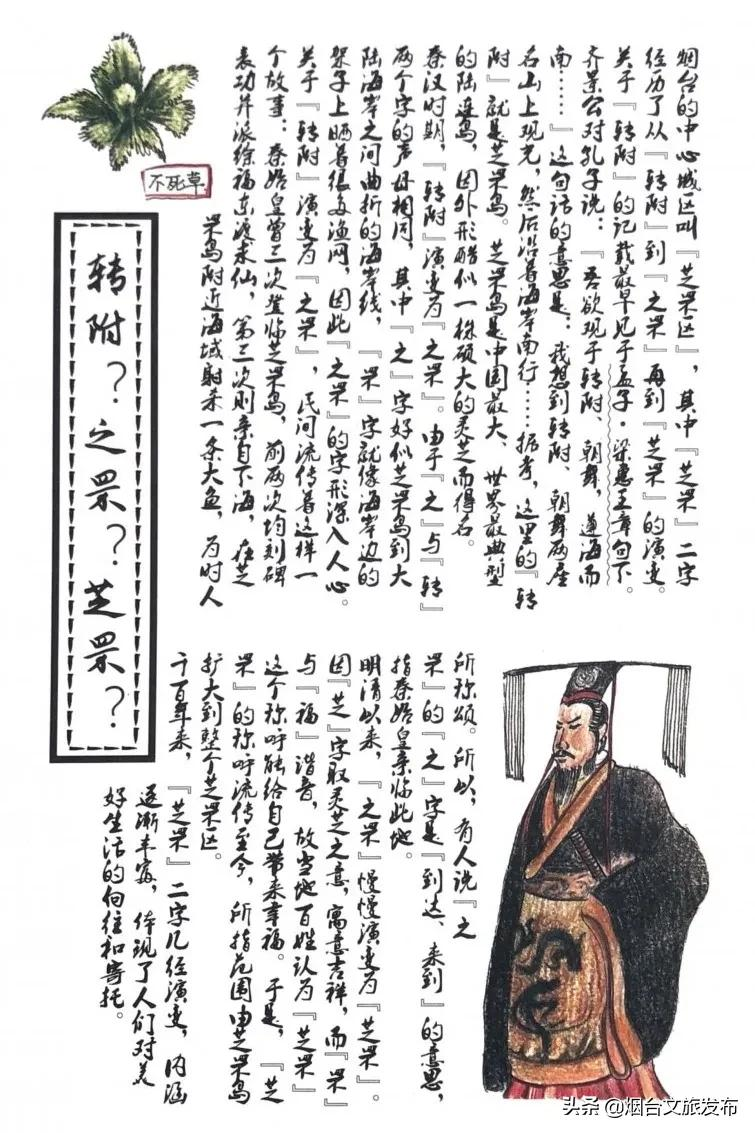 不死草
转附？之罘？芝罘？
烟台的中心城区叫『芝罘区』，其中『芝罘』二字
经历了从『转附』到『之罘』再到『芝罘』的演变。
关于『转附』的记载最早见于孟子·梁惠王章句下。
齐景公对孔子说：『吾欲观于转附、朝儛，遵海而
南……』这句话的意思是：我想到转附、朝舞两座
名山上观光，然后沿着海岸南行……据考，这里的『转
附』就是芝罘岛。芝罘岛是中国最大、世界最典型
的陆连岛，因外形酷似一株硕大的灵芝而得名。
秦汉时期，『转附』演变为『之罘』。由于『之』与『转』
两个字的声母相同，其中『之』字好似芝罘岛到大
陆海岸之间曲折的海岸线，『罘』字就像海岸边的
架子上晒着很多渔网，因此『之罘』的字形深入人心。
关于『转附』演变为『之罘』，民间流传着这样一
个故事：秦始皇曾三次登临芝罘岛，前两次均刻碑
表功并派徐福东渡求仙，第三次则亲自下海，在芝
罘岛附近海域射杀一条大鱼，为时人
所称颂。所以，有人说『之
罘』的『之』字是『到达、来到』的意思，
指秦始皇亲临此地。
明清以来，『之罘』慢慢演变为『芝罘』。
因『芝』字取灵芝之意，寓意吉祥，而『罘』
与『福』谐音，故当地百姓认为『芝罘』
这个称呼能给自己带来幸福。于是，『芝
罘』的称呼流传至今，所指范围由芝罘岛
扩大到整个芝罘区。
千百年来，『芝罘』二字几经演变，内涵
逐渐丰富，体现了人们对美
好生活的向往和寄托。
头条@烟台文旅发布